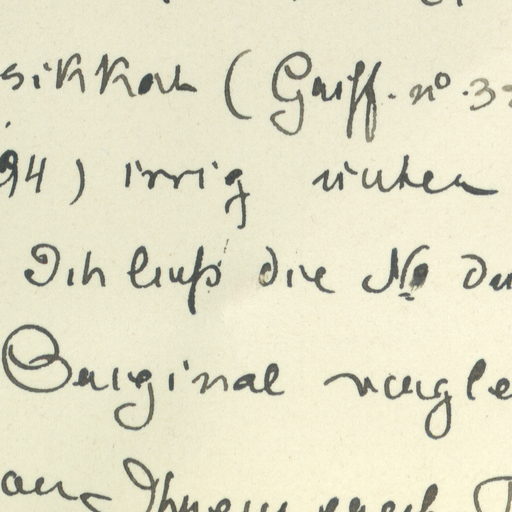 sikkat (Griff. nº. 3
94) irrig unter
Ich ließ die No
Original vergle
an Ihnen nach